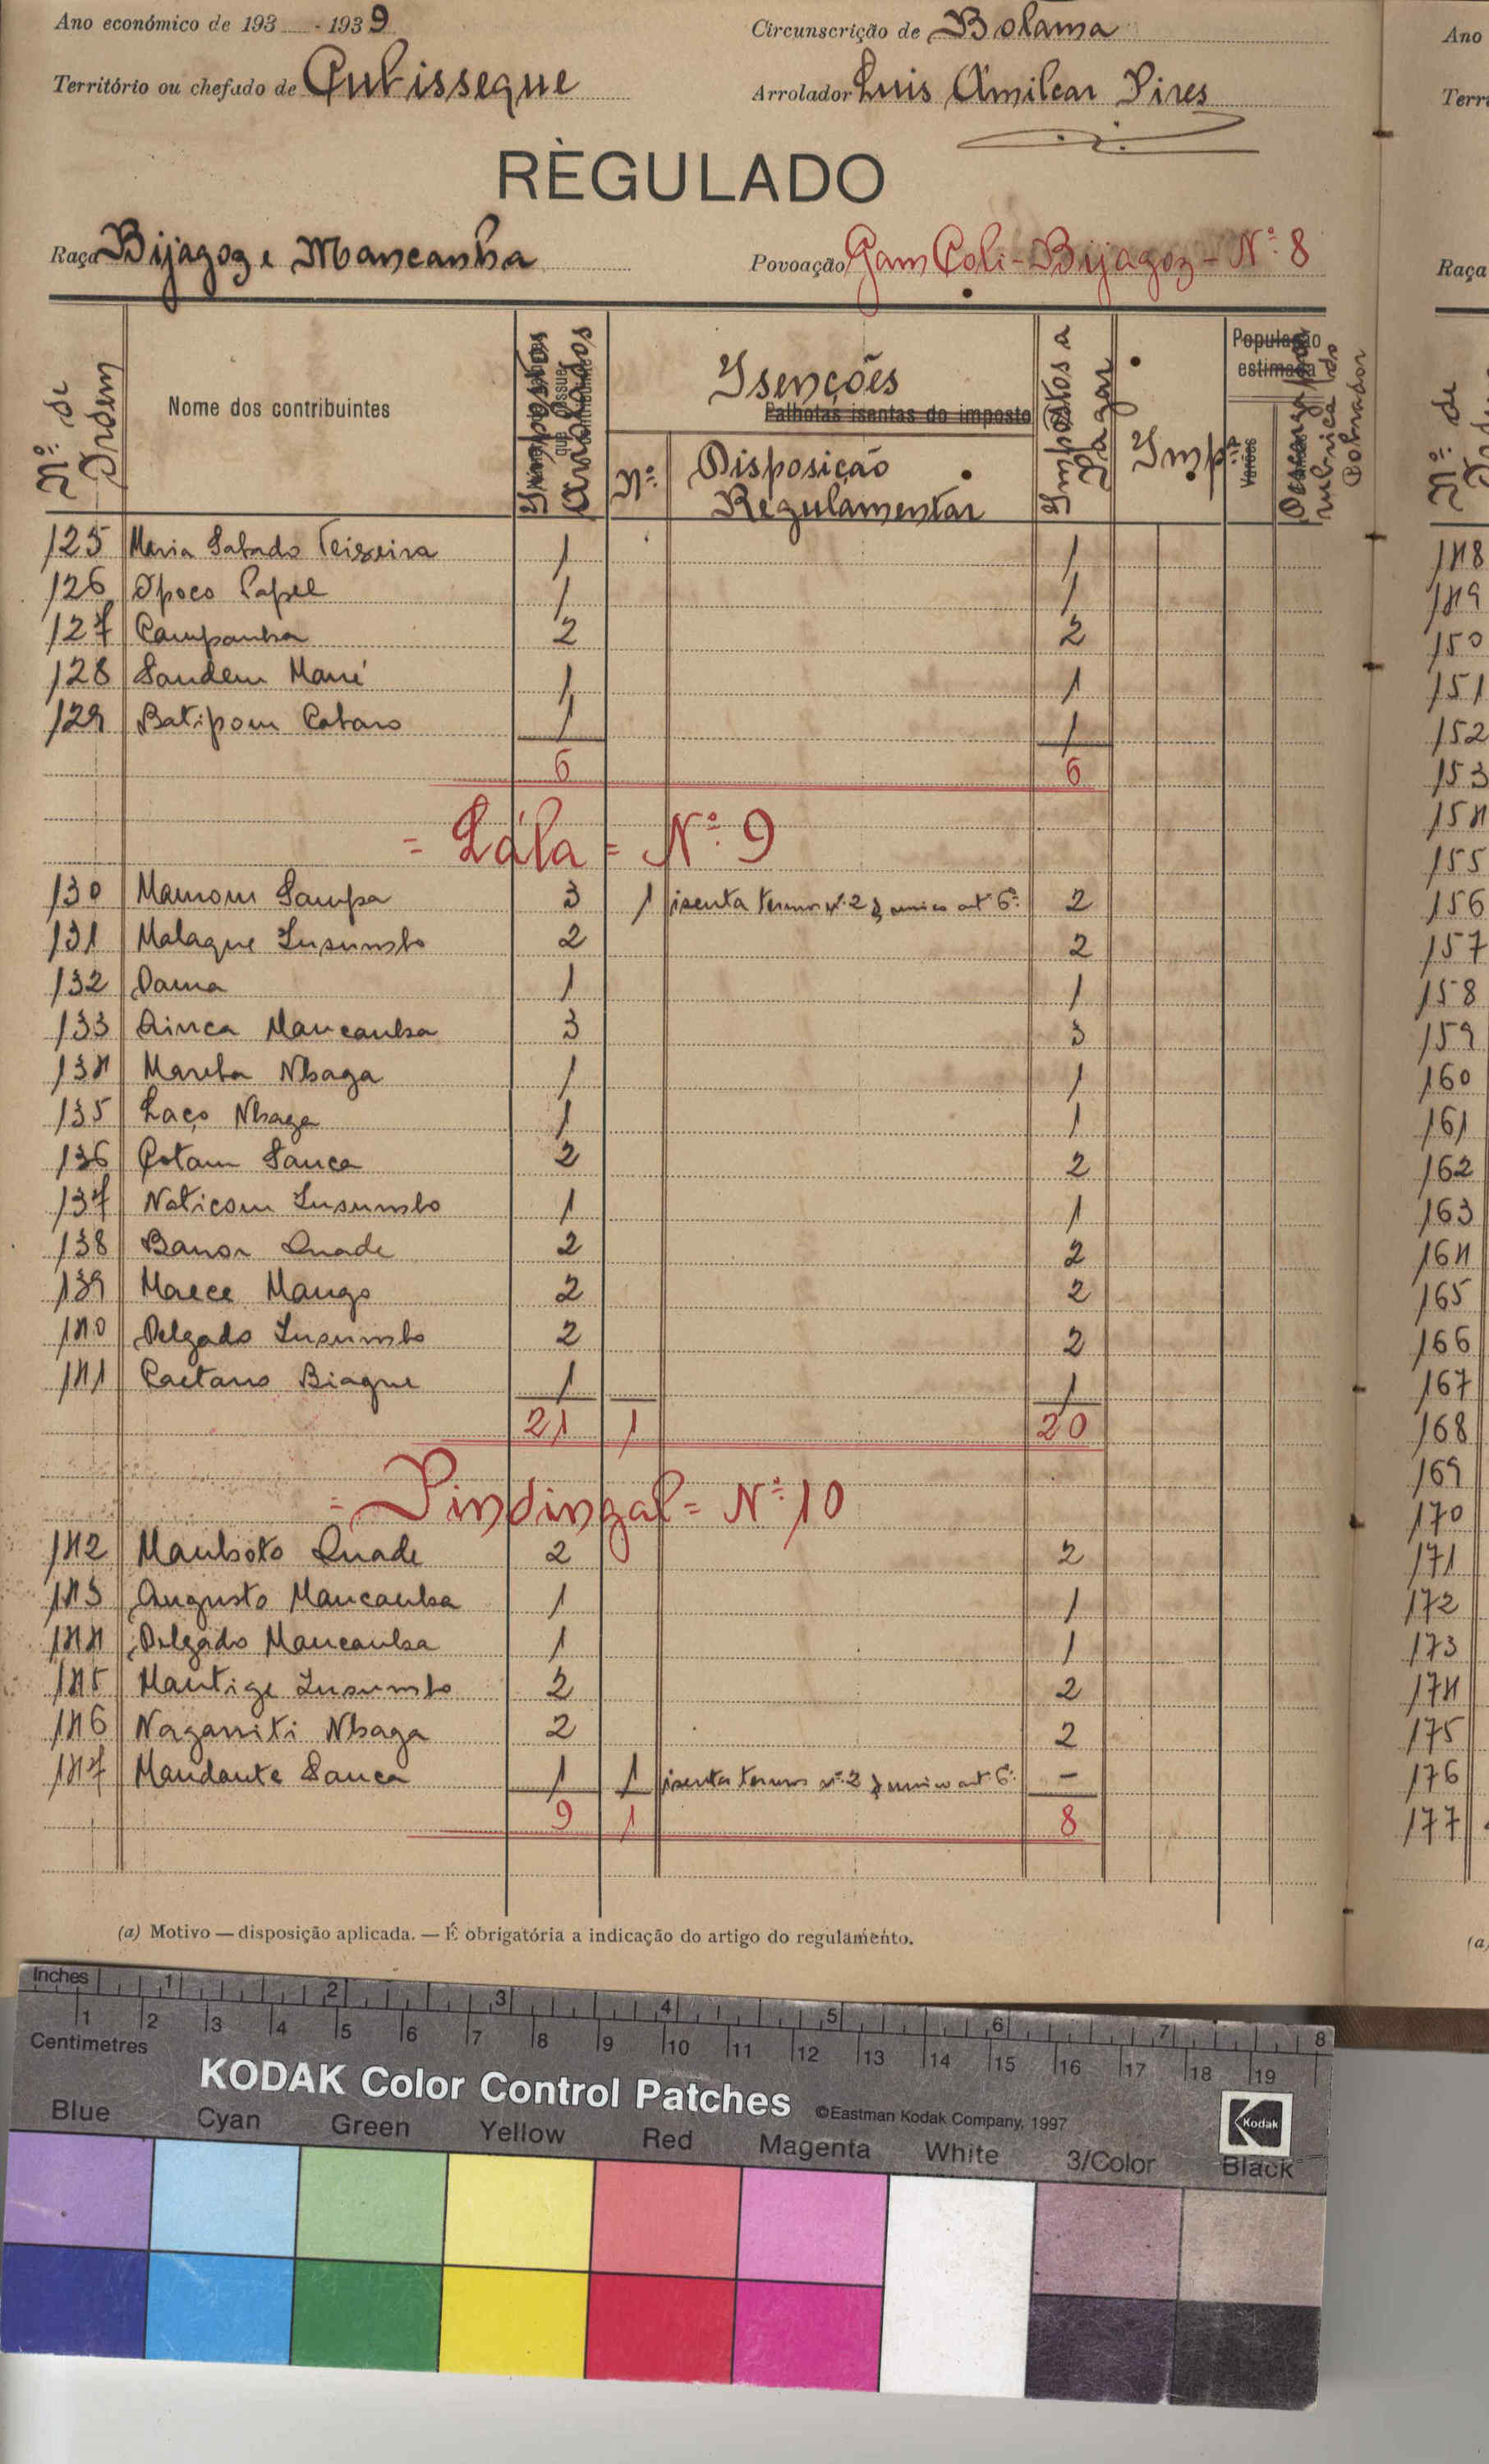 Ano económico de 193 - 1939
Circunscrição de Bolama
Ano
Território ou chefado de Cubisseque
Arrolador Luis Amilcar Pires
Terri
RÈGULADO
Raça Bijagoz e Mancanha
Povoação Gam Coli - Bijagoz - Nº 8
Raça
Nº de Ordem
Nome dos contribuintes
Impostos Arrolados
Isenções
Palhotas isentas do imposto
Nº
Disposição Regulamentar
Impostos a Pagar
Imp.
População estimada
Varões
rubrica do Cobrador
Nº de
125 Maria Sabado Teixeira 1 1
126 Opoco Papel 1 1
127 Campanha 2 2
128 Sandem Mané 1 1
129 Batipom Cabaro 1 1
6 6
= Lála = Nº 9
130 Mamom Sampa 3 1 isenta termos nº 2 § unico art 6º 2
131 Malaque Insumbo 2 2
132 Dama 1 1
133 Quinca Mancanha 3 3
134 Marcha Nbaga 1 1
135 Laço Nbaga 1 1
136 Cotam Sanca 2 2
137 Naticom Insumbo 1 1
138 Banor Quade 2 2
139 Maece Mango 2 2
140 Delgado Insumbo 2 2
141 Caetano Biague 1 1
21 1 20
= Pindingal = Nº 10
142 Manboto Quade 2 2
143 Augusto Mancanha 1 1
144 Delgado Mancanha 1 1
145 Mantige Insumbo 2 2
146 Naganiti Nbaga 2 2
147 Mandante Sanca 1 1 isenta termos nº 2 § unico art 6º -
9 1 8
148
149
150
151
152
153
154
155
156
157
158
159
160
161
162
163
164
165
166
167
168
169
170
171
172
173
174
175
176
177
(a) Motivo — disposição aplicada. — É obrigatória a indicação do artigo do regulamento.
(a)
Inches 1 2 3 4 5 6 7 8
Centimetres 1 2 3 4 5 6 7 8 9 10 11 12 13 14 15 16 17 18 19
KODAK Color Control Patches ©Eastman Kodak Company, 1997
Kodak
Blue Cyan Green Yellow Red Magenta White 3/Color Black